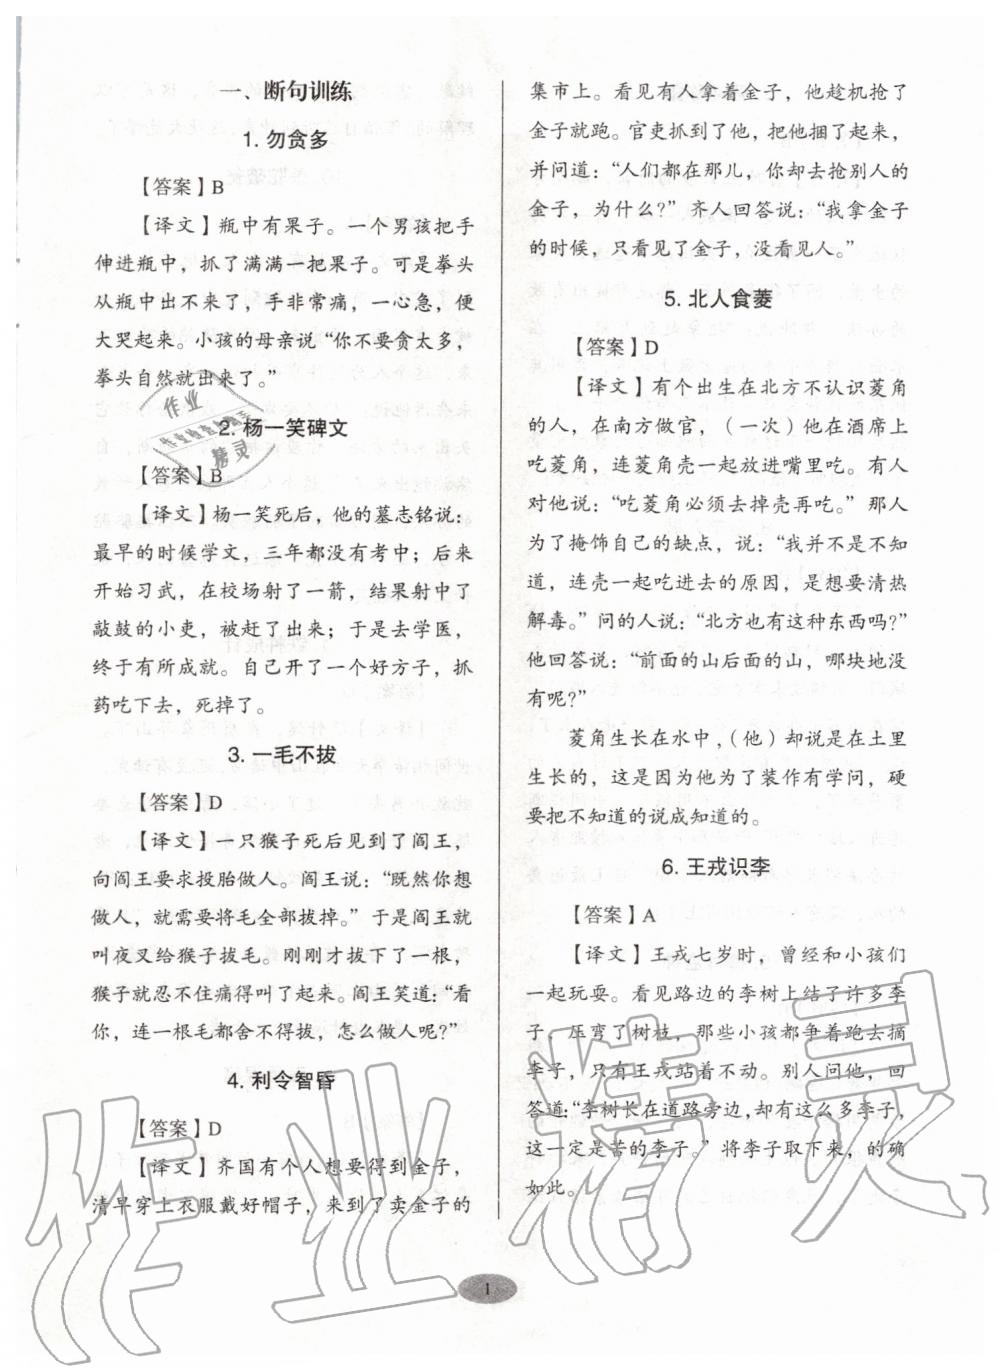 一、断句训练
1. 勿贪多
【答案】B
【译文】瓶中有果子。一个男孩把手
伸进瓶中，抓了满满一把果子。可是拳头
从瓶中出不来了，手非常痛，一心急，便
大哭起来。小孩的母亲说“你不要贪太多，
拳头自然就出来了。”
2. 杨一笑碑文
【答案】B
【译文】杨一笑死后，他的墓志铭说：
最早的时候学文，三年都没有考中；后来
开始习武，在校场射了一箭，结果射中了
敲鼓的小吏，被赶了出来；于是去学医，
终于有所成就。自己开了一个好方子，抓
药吃下去，死掉了。
3. 一毛不拔
【答案】D
【译文】一只猴子死后见到了阎王，
向阎王要求投胎做人。阎王说：“既然你想
做人，就需要将毛全部拔掉。”于是阎王就
叫夜叉给猴子拔毛。刚刚才拔下了一根，
猴子就忍不住痛得叫了起来。阎王笑道：“看
你，连一根毛都舍不得拔，怎么做人呢?”
4. 利令智昏
【答案】D
【译文】齐国有个人想要得到金子，
清早穿上衣服戴好帽子，来到了卖金子的
集市上。看见有人拿着金子，他趁机抢了
金子就跑。官吏抓到了他，把他捆了起来，
并问道：“人们都在那儿，你却去抢别人的
金子，为什么?”齐人回答说：“我拿金子
的时候，只看见了金子，没看见人。”
5. 北人食菱
【答案】D
【译文】有个出生在北方不认识菱角
的人，在南方做官，（一次）他在酒席上
吃菱角，连菱角壳一起放进嘴里吃。有人
对他说：“吃菱角必须去掉壳再吃。”那人
为了掩饰自己的缺点，说：“我并不是不知
道，连壳一起吃进去的原因，是想要清热
解毒。”问的人说：“北方也有这种东西吗?”
他回答说：“前面的山后面的山，哪块地没
有呢?”
菱角生长在水中，（他）却说是在土里
生长的，这是因为他为了装作有学问，硬
要把不知道的说成知道的。
6. 王戎识李
【答案】A
【译文】王戎七岁时，曾经和小孩们
一起玩耍。看见路边的李树上结了许多李
子，压弯了树枝，那些小孩都争着跑去摘
李子，只有王戎站着不动。别人问他，回
答道：“李树长在道路旁边，却有这么多李子，
这一定是苦的李子。”将李子取下来，的确
如此。
1
作业精灵